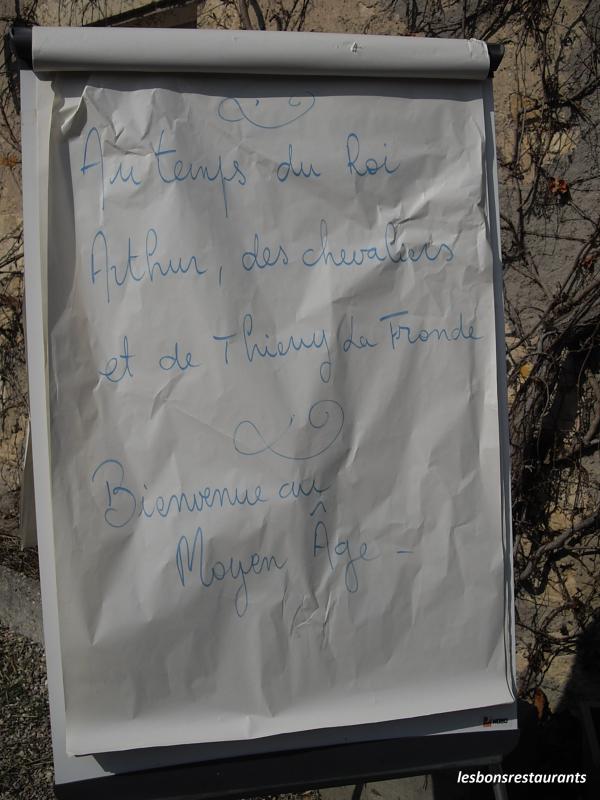 Au temps du Roi
Arthur, des chevaliers
et de Thierry La Fronde
Bienvenue au
Moyen Âge -
lesbonsrestaurants